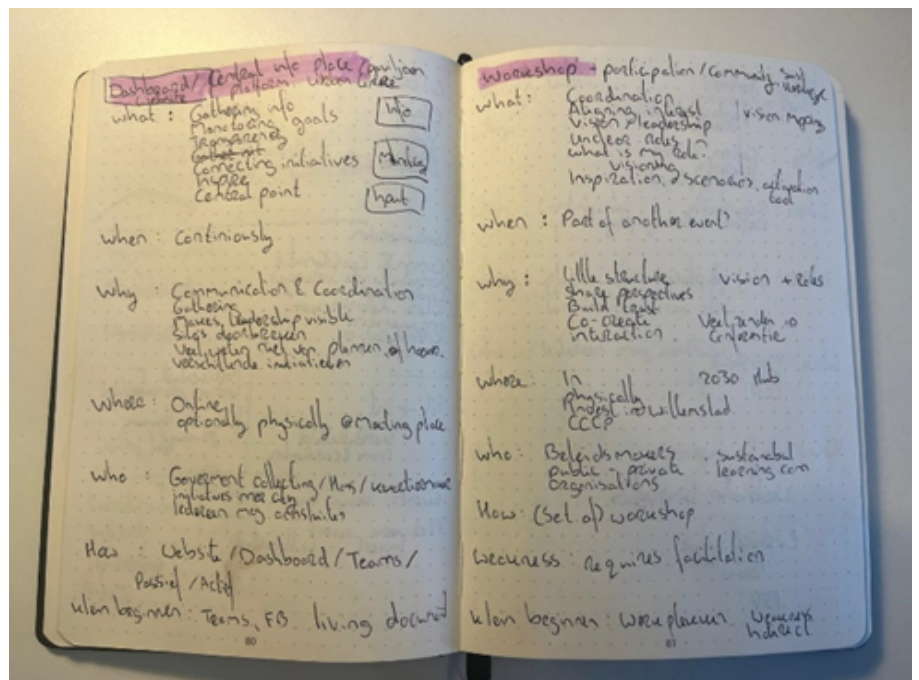 Dashboard / Central info place /
website platform
what : Gathering info
Monotoring goals
Transparency
Connecting initiatives
Inspire
Central point
Info
Monitoring
Input
when : Continiously
why : Communication & Coordination
Gathering
Makes leadership visible
Silo's doorbreken
Veel weten niet van plannen of
verschillende initiatieven
Where : Online
optionally physically @ meeting place
who : Goverment collecting /
initiatives
iedereen mag
How : Website / Dashboard / Teams /
Passief / Actief
klein beginnen : Teams, FB living document
80
Workshop + participation / Community
what : Coordination
Aligning interest
Vision & leadership
unclear roles
what is my role?
visioning
Inspiration, 2 scenarios, activation
tool
vision mapping
when : Part of another event?
why : little structure vision + roles
share perspectives
Build trust
Co-create
interaction conferentie
Where : In 2030 Hub
physically
in Willemstad
CCCP
who : Beleidsmakers
public - private learning
organisations
How : (Set of) workshop
weakness : requires facilitation
klein beginnen :
Indirect
81